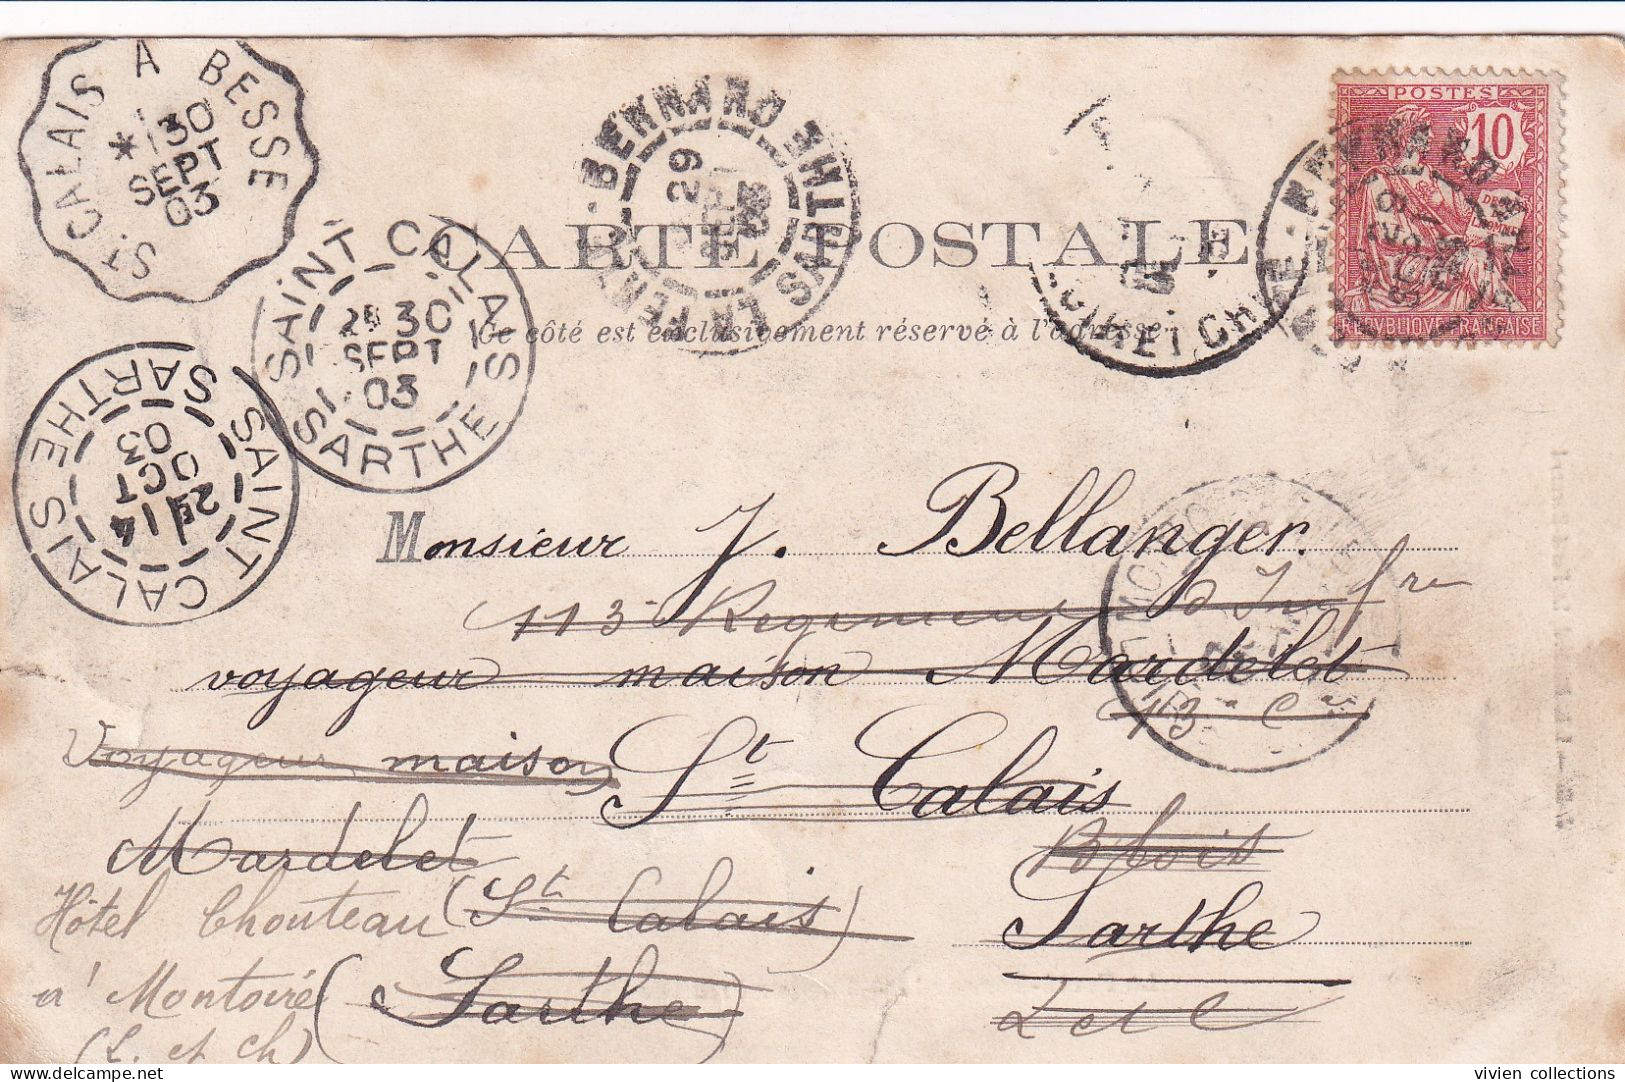 ST CALAIS A BESSE
*
30
SEPT
03
LA FERTE-BERNARD SARTHE
29
SEPT
03
POSTES
10
REPUBLIQUE FRANÇAISE
CARTE POSTALE
Ce côté est exclusivement réservé à l'adresse
SAINT CALAIS
2E 30
SEPT
03
SARTHE
SAINT CALAIS
2E 14
OCT
03
SARTHE
LOIR-ET-CHER
03
Monsieur J. Bellanger.
113 Régiment d'Infrie
voyageur maison Mardelet
13 Cie
Voyageur maison
St Calais
Mardelet
Blois
Hôtel Chouteau (St Calais)
Sarthe
à Montoire (Sarthe)
L et C
(L. et Ch)
vivien collections